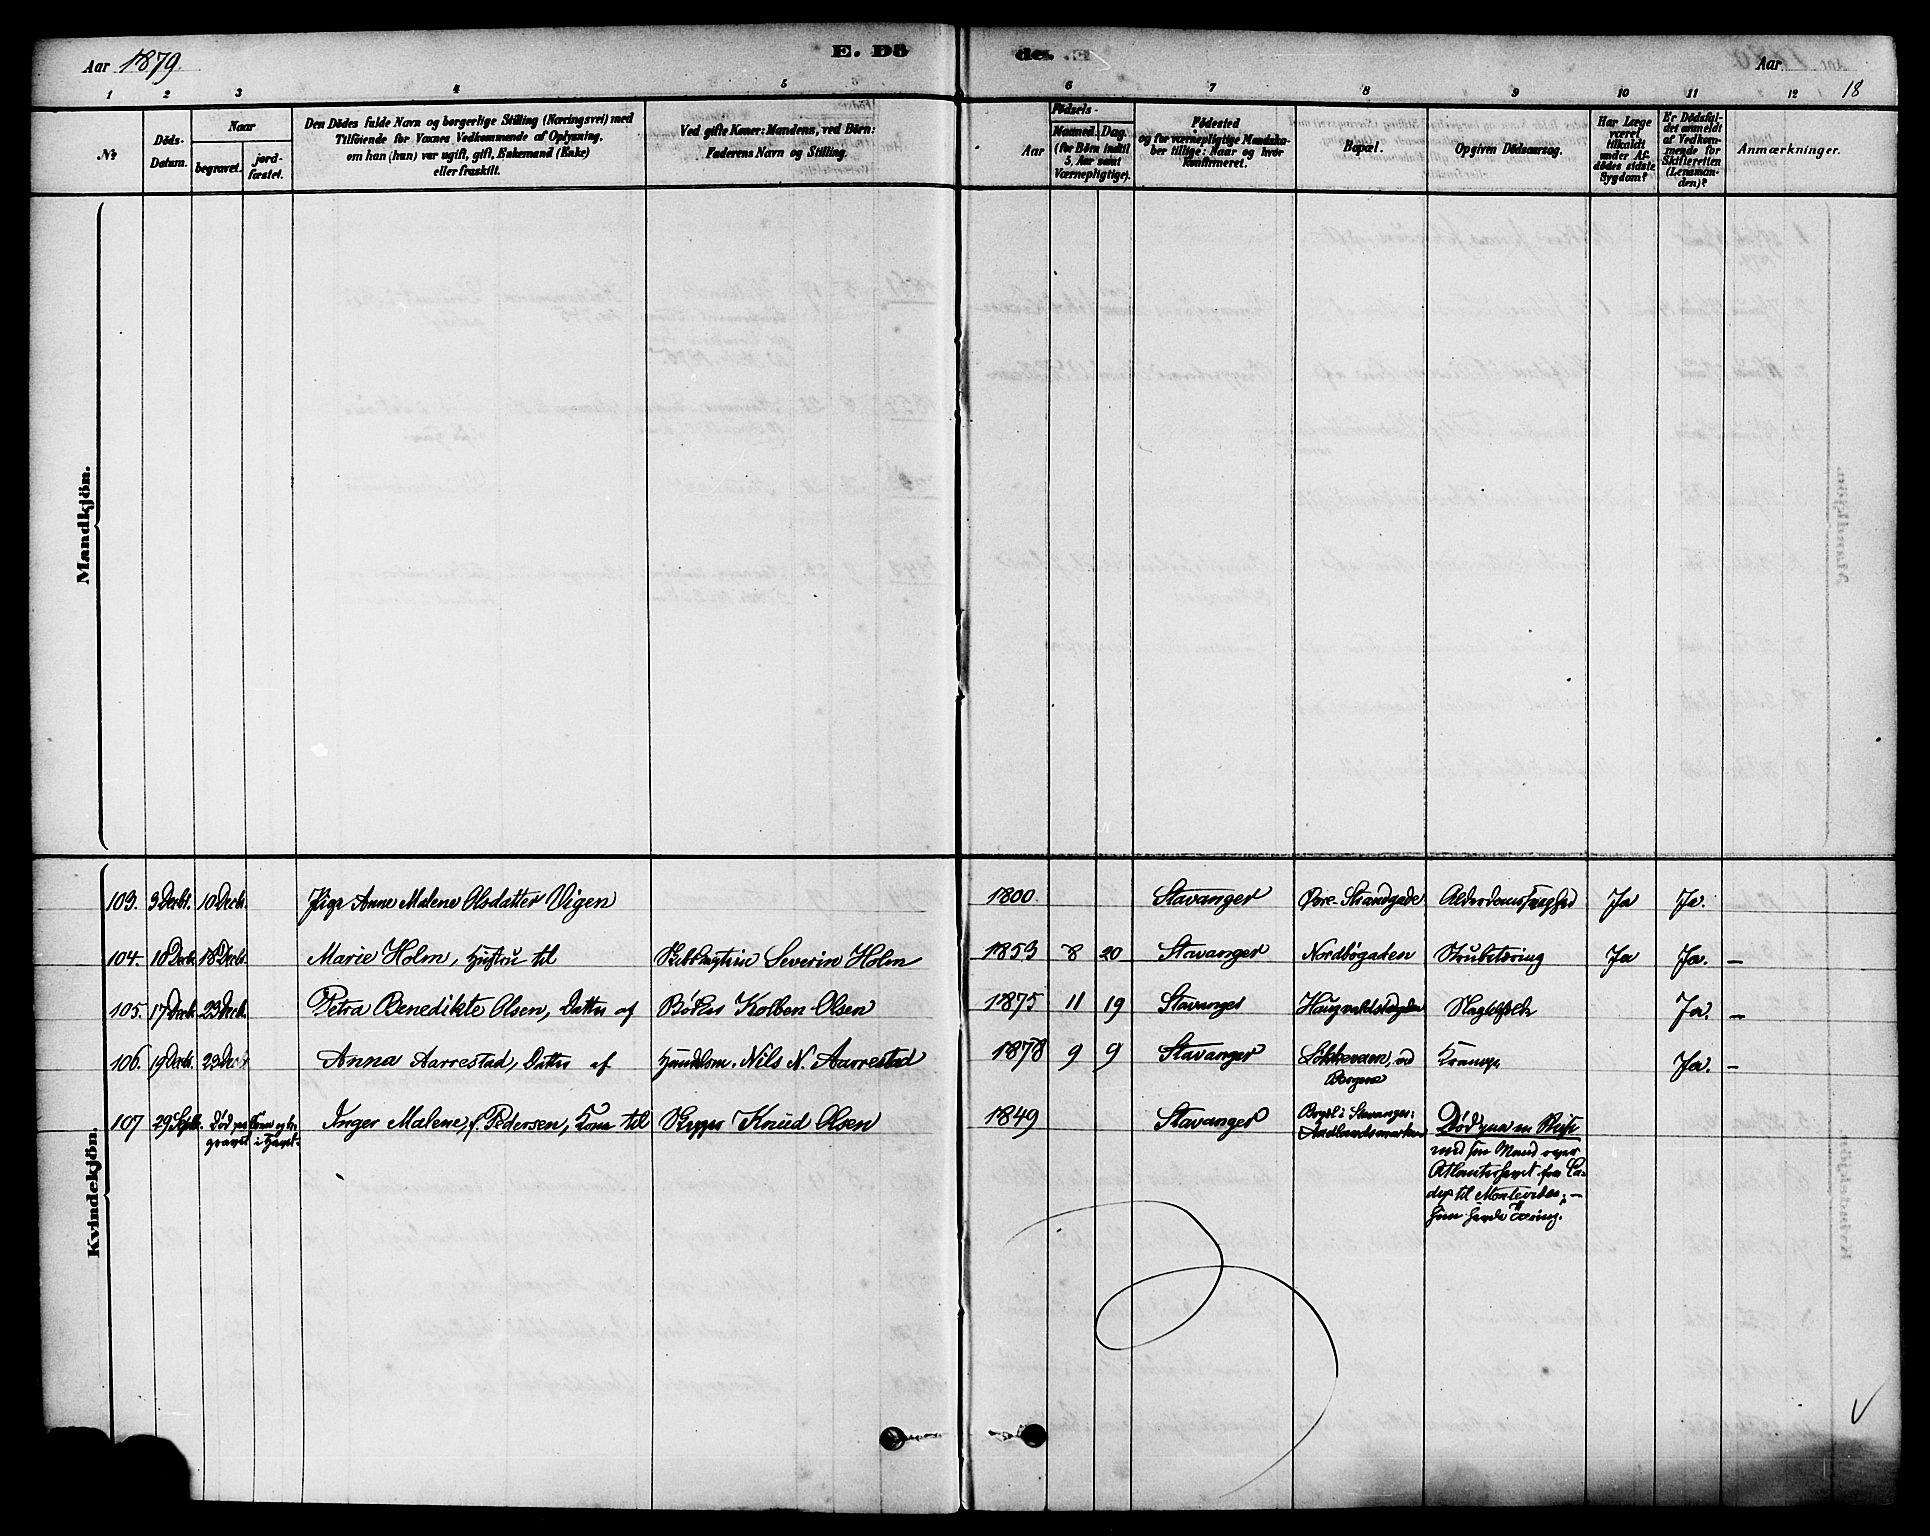 Aar 1879.
E. Dö
des.
Aar
18
1 2 3 4 5 6 7 8 9 10 11 12
No
Döds-
Datum.
Naar
begravet.
jord-
fæstet.
Den Dödes fulde Navn og borgerlige Stilling (Næringsvei) med
Tilföiende for Voxnes Vedkommende af Oplysning,
om han (hun) var ugift, gift, Enkemand (Enke)
eller fraskilt.
Ved gifte Koner: Mandens, ved Börn:
Faderens Navn og Stilling.
Födsels-
Aar
Maaned. Dag.
(for Börn indtil
5. Aar samt
Værnepligtige).
Födested
og for værnepligtige Mandska-
ber tillige: Naar og hvor
Konfirmeret.
Bopæl.
Opgiven Dödsaarsag.
Har Læge
været
tilkaldt
under Af-
dödes sidste
Sygdom?
Er Dödsfal-
det anmeldt
af Vedkom-
mende for
Skifteretten
(Lensman-
den)?
Anmærkninger.
Mandkjön.
Kvindekjön.
103. 9 Decbr. 10 Decb. Pige Anne Malene Olsdatter Vigen 1800. Stavanger Øvre-Strandgade Alderdomssvaghed Ja Ja.
104. 10 Decb. 18 Decb. Marie Holm, Hustru til Severin Holm 1853 8 20 Stavanger Nordbøgaden Strubetæring Ja Ja. –
105. 17 Decb. 23 Decb. Petra Benedikte Olsen, Datter af Bødker Kolben Olsen 1875 11 19 Stavanger Ja. –
106. 19 Decb. 23 Decb. Anna Aarrestad, Datter af Handelsm. Nils N. Aarrestad 1878 9 9 Stavanger ved Krampe Ja. –
Bergene
107 29 Septb. Død paa Søen og be- Inger Malene, f. Pedersen, Kone til Skipper Knud Olsen 1849 Stavanger Bopæl i Stavanger: Død paa en Reise
gravet i Havet. Aadlandsmarken
med sin Mand over
Atlanterhavet fra Ca-
dix til Montevideo; –
hun havde Tæring.